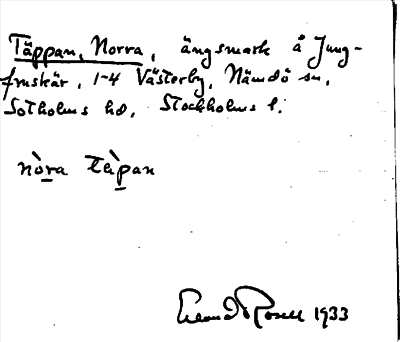 Täppan, Norra, ängsmark å Jung-
fruskär, 1-4 Västerby, Nämdö sn,
Sotholms hd, Stockholms l.
nòra tàpan
1933